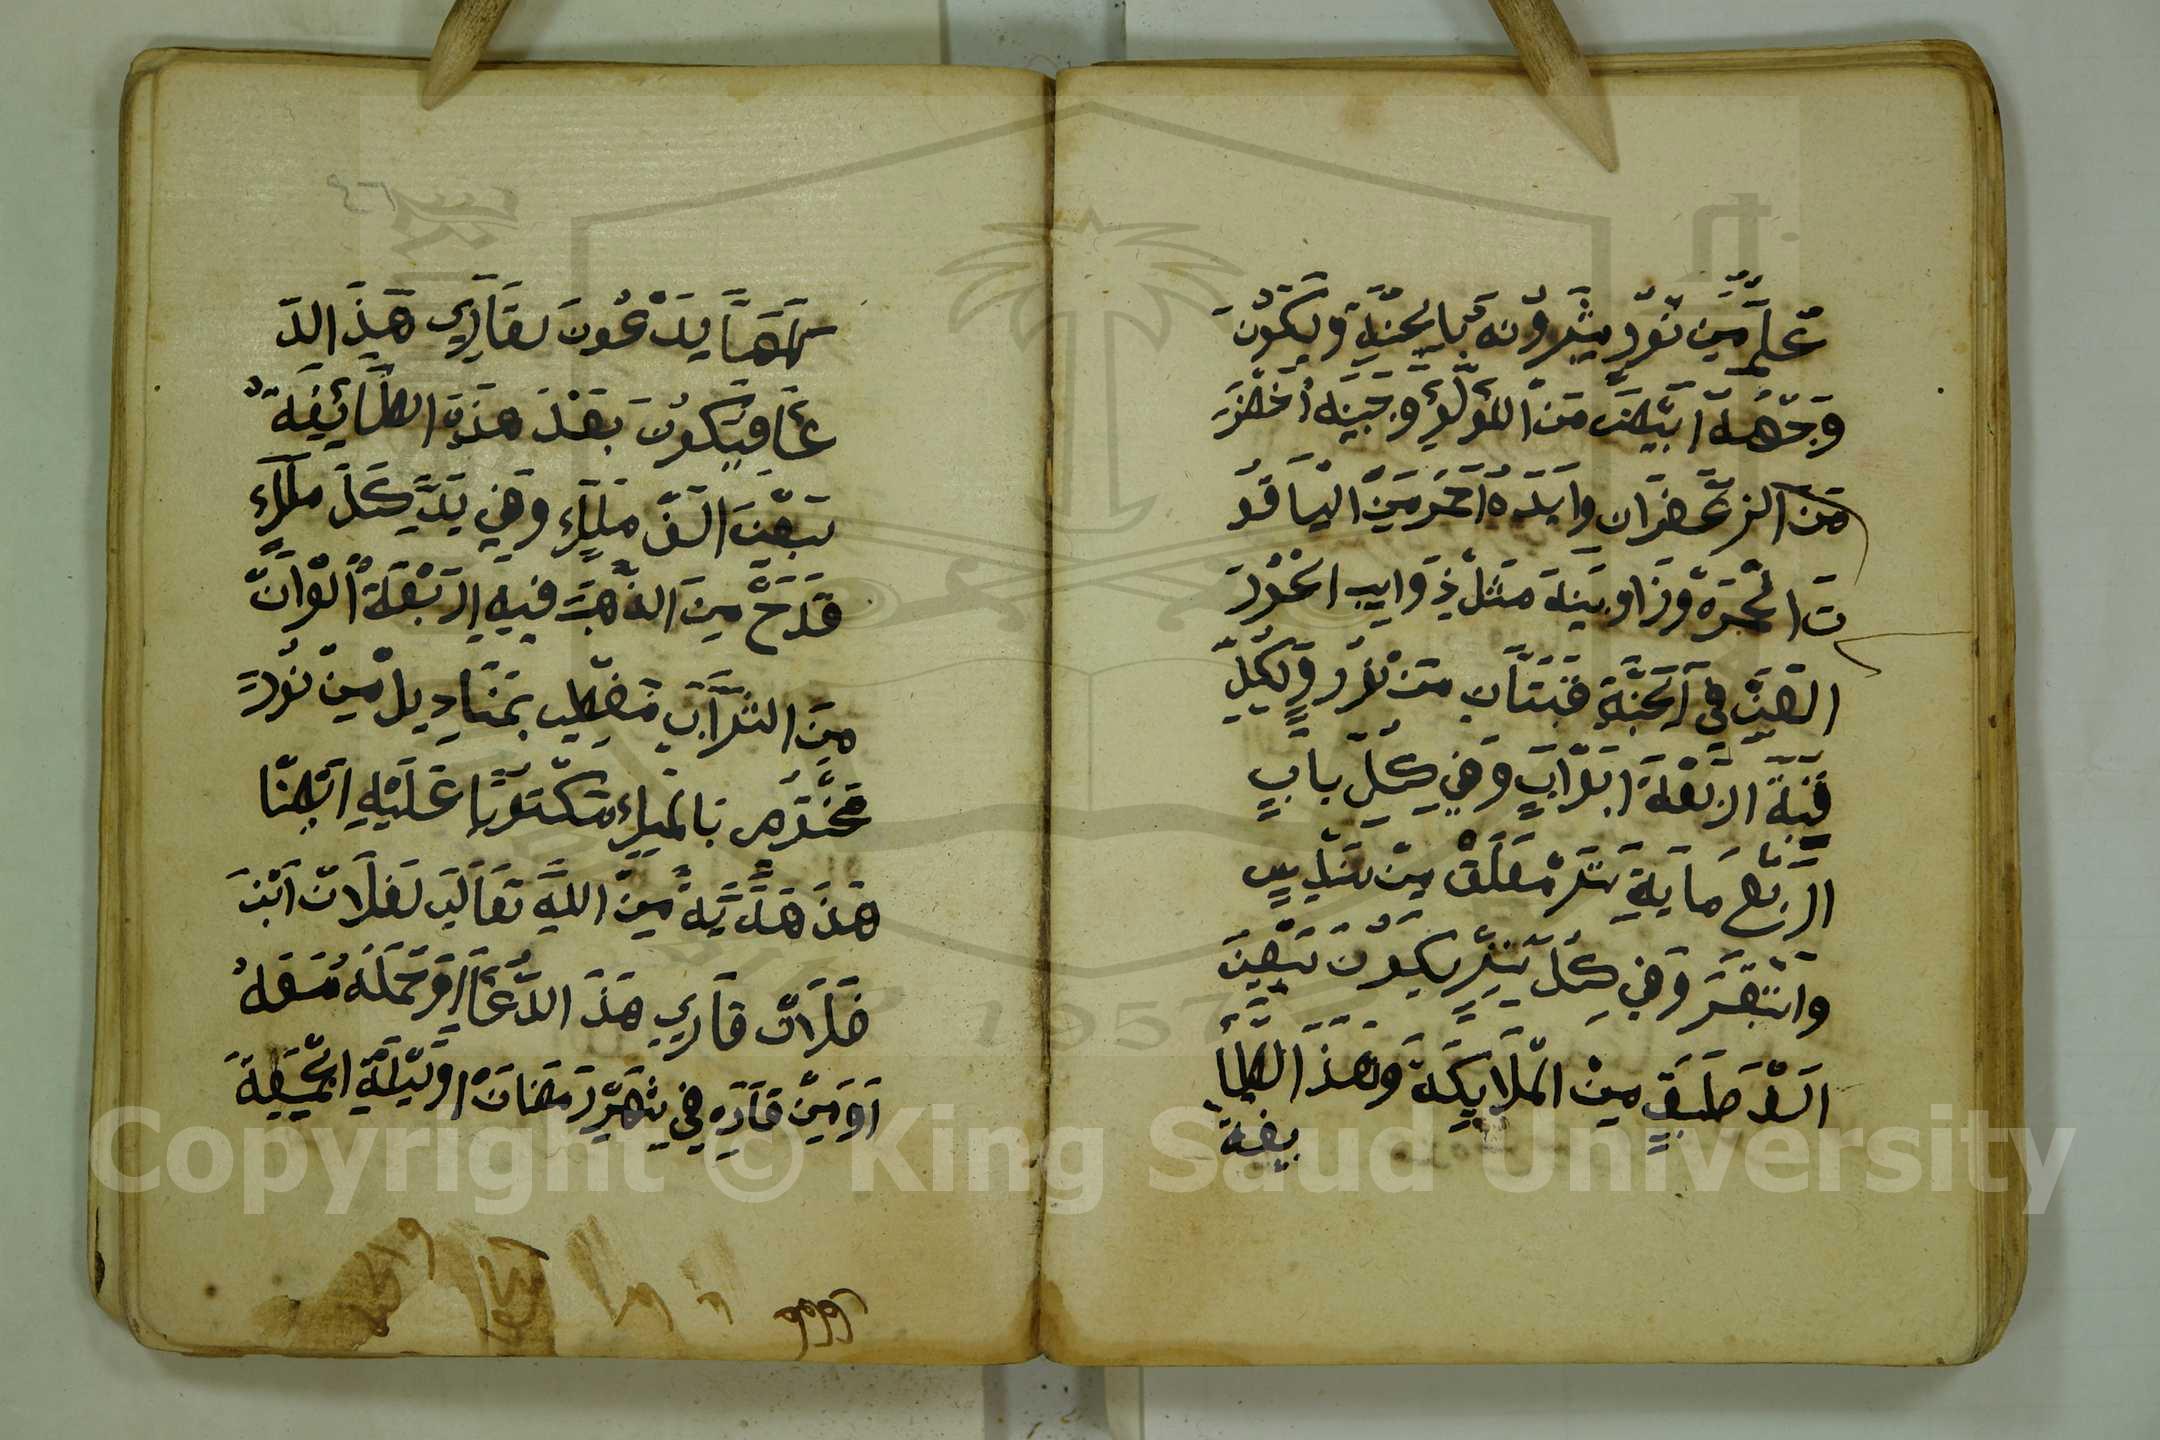 علم من نور يشرونه بالجنة ويكون
وجهه ابيض من اللؤلؤ وجبينه اخضر
من الزعفران وايده احمر من الياقو
ت الحمره وزاوبينه مثل ذوايب الحور
العين في الجنة قبتان من نور ولكل
قبة اربعة ابواب وفي كل باب
اربع ماية ستر معلق من سندس
واستبقر وفي كل ستر يكون سبعين
الف طبق من الملايكة وهذا الطا
يفة
كهما يدعون لقاري هذ الد
عا فيكون بعد هذه الطائيفة
سبعين الف ملاء وفي يد كل ملاء
قدح من الذهب فيه اربعة الوان
من الشراب مغطي بمناديل من نور
مختوم بالمياء مكتوبا عليه ايضا
هذ هدية من الله تعالى لفلان ابن
فلان قاري هذ الدعا او حمله معه
او من قاره في شهر رمضان او ليلة الجمعة
Copyright © King Saud University
1957